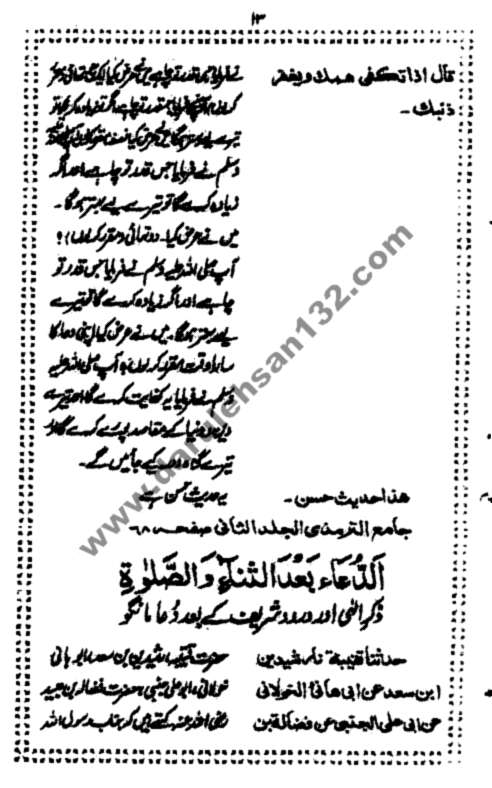 ۱۳
قال اذا تكفى همك و يغفر
ذنبك۔
نے فرمایا جس قدر تو چاہے میں نے عرض کیا ایک تہائی مقرر
کرلوں؟ آپ نے فرمایا جس قدر تو چاہے اگر تو زیادہ کرے گا تو
تیرے لیے بہتر ہوگا میں نے عرض کیا نصف مقرر کرلوں
وسلم نے فرمایا جس قدر تو چاہے اور اگر
زیادہ کرے گا تو تیرے لیے بہتر ہوگا۔
میں نے عرض کیا۔ دو تہائی مقرر کرلوں؟
آپ صلی اللہ علیہ وسلم نے فرمایا جس قدر تو
چاہے اور اگر زیادہ کرے گا تو تیرے
لیے بہتر ہوگا۔ میں نے عرض کیا اپنی دعا کا
سارا وقت مقرر کرلوں؟ آپ صلی اللہ علیہ
وسلم نے فرمایا یہ کفایت کرے گا اور تیرے
دین و دنیا کے مقاصد پورے کرے گا اور
تیرے گناہ معاف کیے جائیں گے۔
هذا حديث حسن۔
یہ حدیث حسن ہے
جامع الترمذی الجلد الثانی صفحہ ۶۸
اَلدُّعَاء بَعْدَ الثَّنَاءِ وَالصَّلٰوةِ
ذکر الٰہی اور درود شریف کے بعد دُعا مانگو
حدثنا قتيبة نا رشيد بن
ابن سعد عن ابى هانئ الخولانى
عن ابى على الجنبى عن فضالة بن
حضرت قتیبہ، رشید بن سعد، ابو ہانی
خولانی، ابو علی جنبی، حضرت فضالہ بن عبید
رضی اللہ عنہ کہتے ہیں کہ جناب رسول اللہ
www.darulehsan132.com